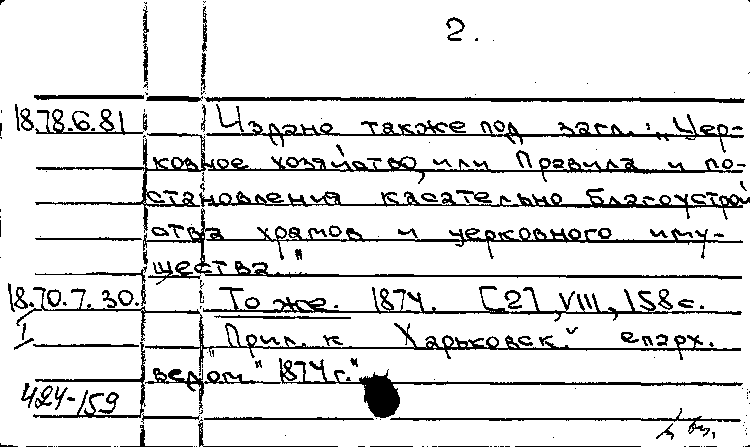 2.
18.78.6.81 Издано также под загл.: „Цер-
ковное хозяйство, или Правила и по-
становления касательно благоустрой
ства храмов и церковного иму-
щества."
18.70.7.30. То же. 1874. [2], VIII, 158 с.
I „Прил. к Харьковск. епарх.
ведом." 1874 г."
424-159